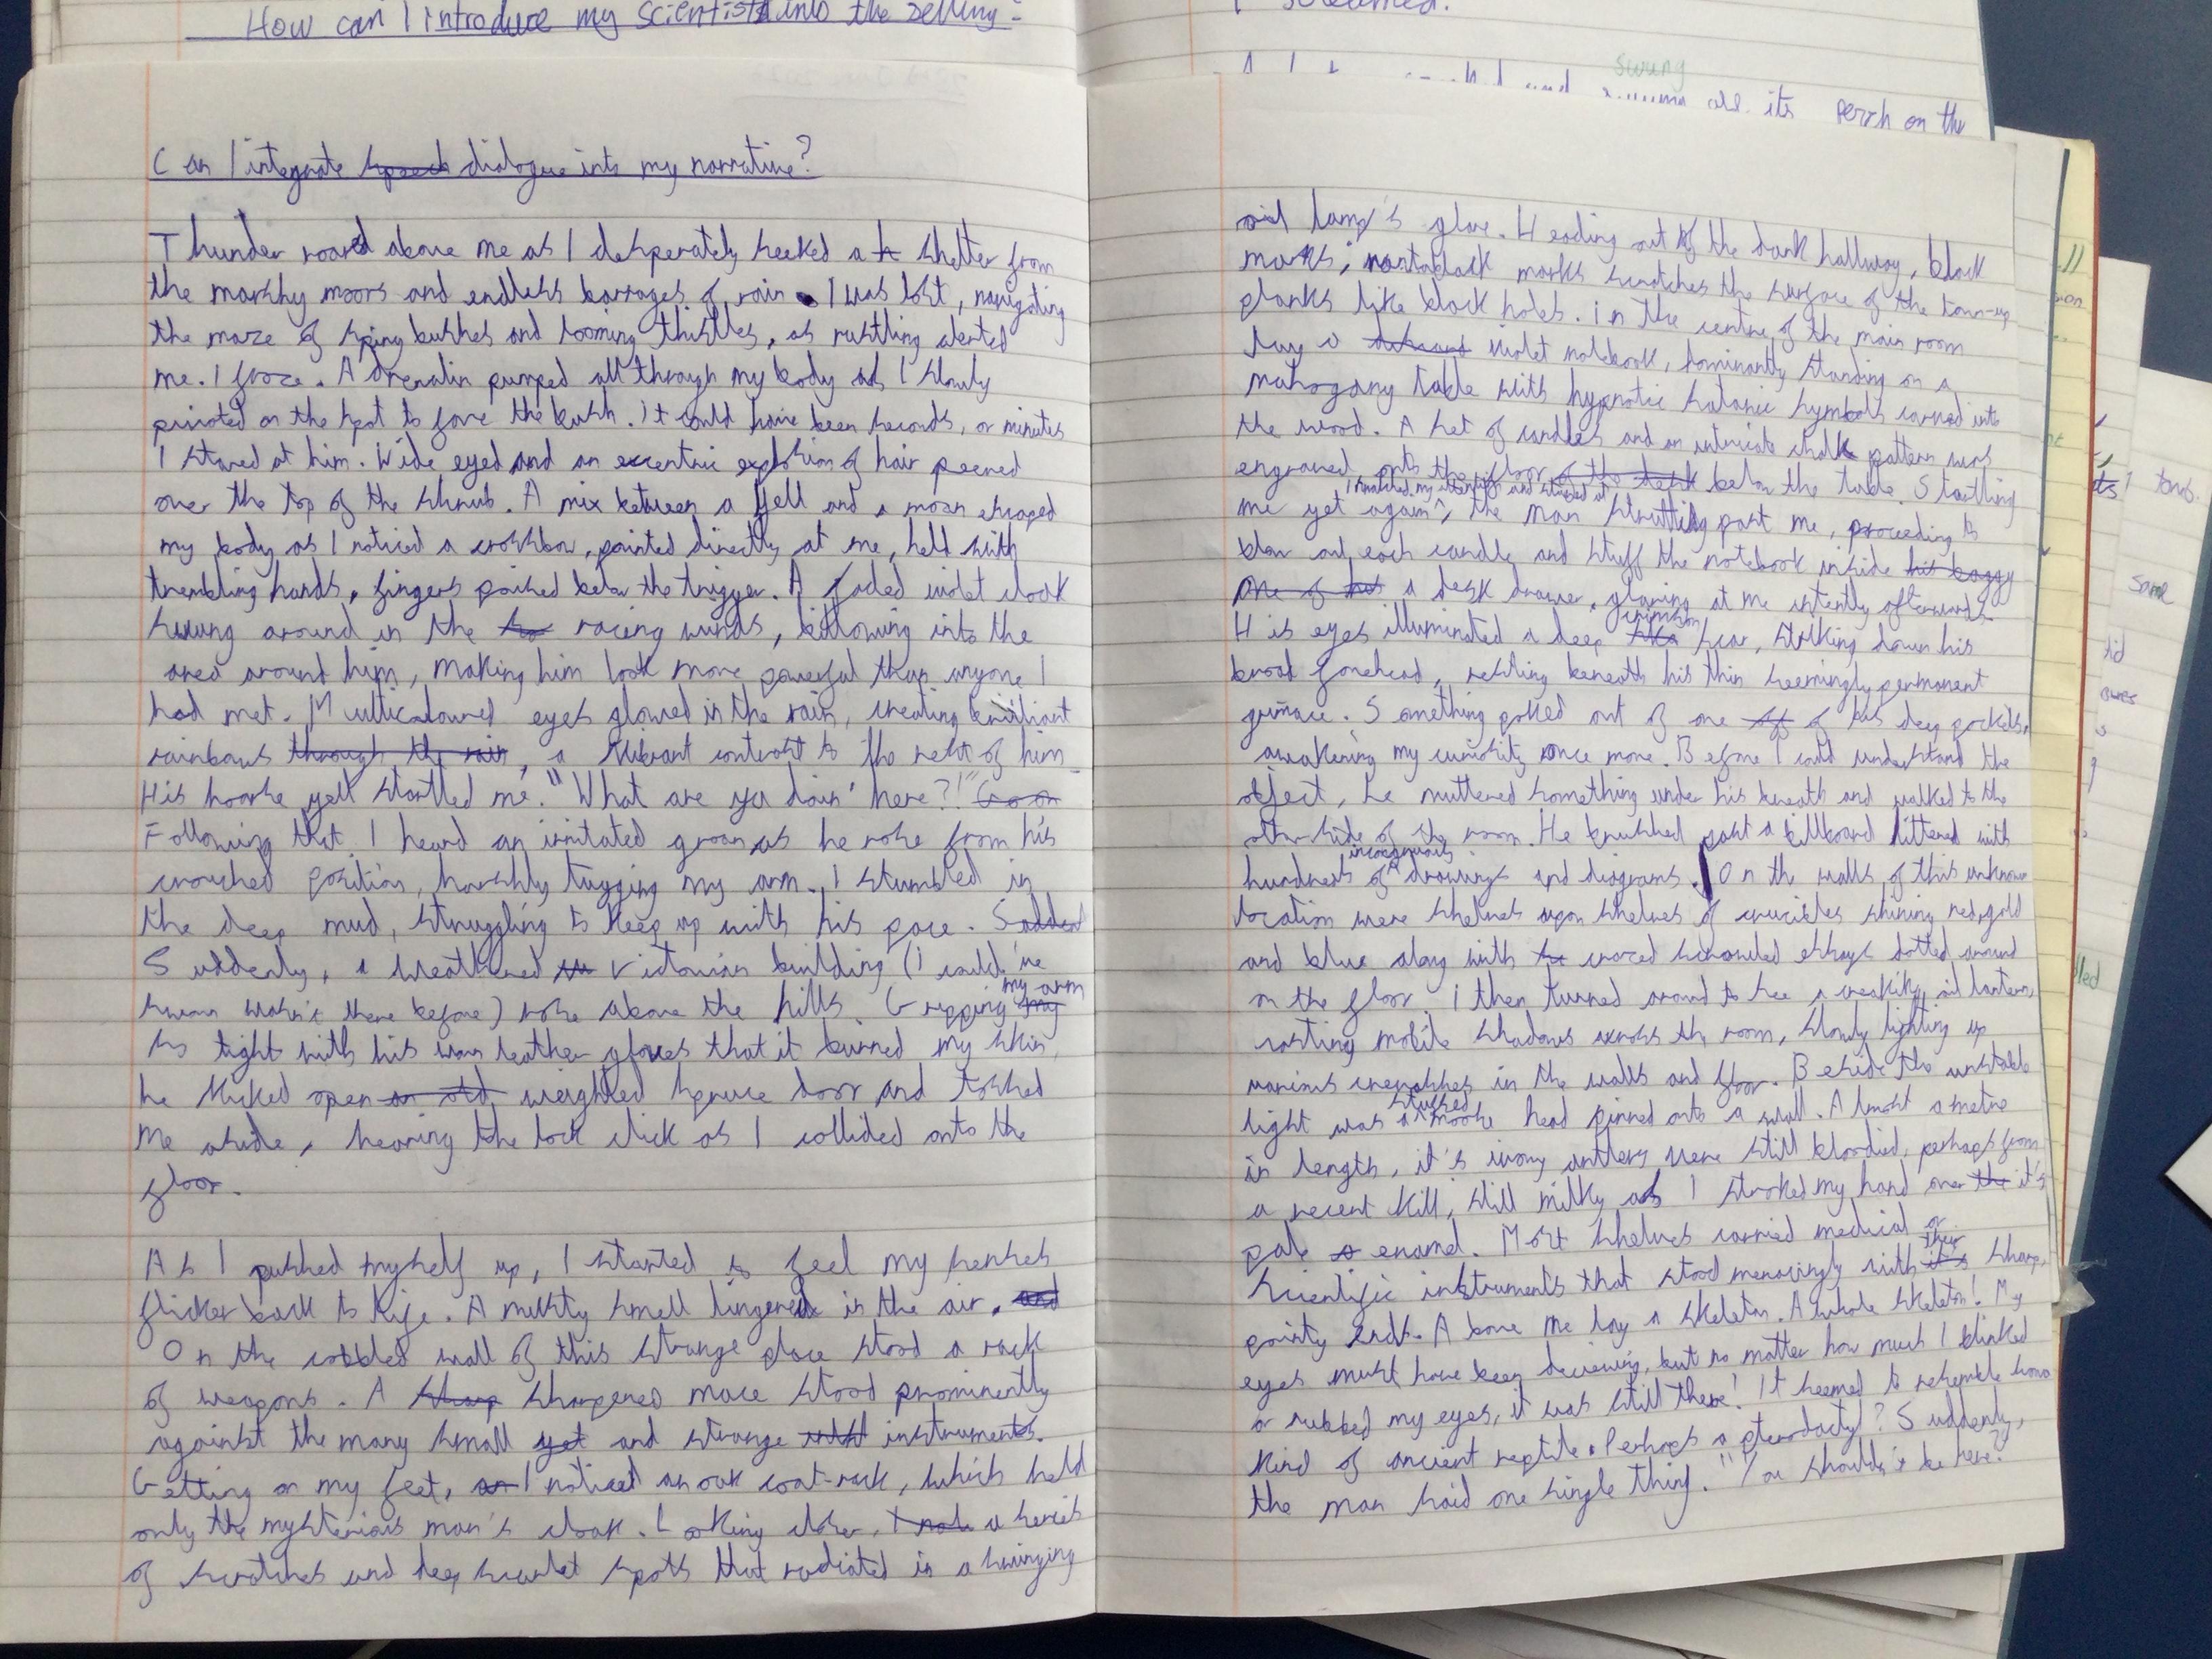 How can I introduce my scientists into the setting?
screamed.
swung
its perch on the
Can I integrate speech dialogue into my narrative?
Thunder roared above me as I desperately seeked a shelter from
the marshy moors and endless barrages of rain. I was lost, navigating
the maze of spiny bushes and looming thistles, as rustling alerted
me. I froze. Adrenalin pumped all through my body as I slowly
pivoted on the spot to face the bush. It could have been seconds, or minutes
I stared at him. Wide eyed and an excentric explosion of hair peered
over the top of the shrub. A mix between a yell and a moan escaped
my body as I noticed a crossbow, pointed directly at me, held with
trembling hands, fingers poised below the trigger. A faded violet cloak
swung around in the racing winds, billowing into the
area around him, making him look more powerful than anyone I
had met. Multicoloured eyes glowed in the rain, creating brilliant
rainbows through the rain, a vibrant contrast to the rest of him.
His hoarse yell startled me. "What are ya doin' here?!"
Following that I heard an irritated groan as he rose from his
crouched position, harshly tugging my arm. I stumbled in
the deep mud, struggling to keep up with his pace. Sudden
Suddenly, a weathered Victorian building (I could've
sworn wasn't there before) rose above the hills. Gripping my my arm
so tight with his worn leather gloves that it burned my skin,
he kicked open an old weighted spruce door and tossed
me aside, hearing the lock click as I collided onto the
floor.
As I pushed myself up, I started to feel my senses
flicker back to life. A musty smell lingered in the air. and
On the cobbled wall of this strange place stood a rack
of weapons. A sharp sharpened mace stood prominently
against the many small yet and strange instruments.
Getting on my feet, I noticed an oak coat-rack, which held
only the mysterious man's cloak. Looking closer, a series
of scratches and deep scarlet spots that radiated in a swinging
oid lamp's glow. Heading out of the dark hallway, black
marks, marks scratches the surface of the torn-up
planks like black holes. In the centre of the main room
lay a violet notebook, dominantly standing on a
mahogany table with hypnotic satanic symbols carved into
the wood. A set of candles and an intricate chalk pattern was
engraved onto the floor of the desk below the table. Startling
me yet again, I snatched my attention and stared at the man strutting past me, proceeding to
blow out each candle and stuff the notebook inside his baggy
one of his a desk drawer, glaring at me intently afterwards.
His eyes illuminated a deep crimson scar, striking down his
broad forehead, settling beneath his thin seemingly permanent
grimace. Something poked out of one of his deep pockets,
awakening my curiosity once more. Before I could understand the
object, he muttered something under his breath and walked to the
other side of the room. He brushed past a billboard littered with
hundreds of incongruous drawings and diagrams. On the walls of this unknown
location were shelves upon shelves of crucibles shining red, gold
and blue along with crazed scrawled essays dotted around
on the floor. I then turned around to see a creaking oil lantern,
casting mobile shadows across the room, slowly lighting up
various crevasses in the walls and floor. Beside the unstable
light was a stuffed moose head pinned onto a wall. Almost a metre
in length, it's ivory antlers were still bloodied, perhaps from
a recent kill, still milky as I stroked my hand over the it's
pale enamel. Most shelves carried medical or
scientific instruments that stood menacingly with it's their sharp,
pointy ends. Above me lay a skeleton. A whole skeleton! My
eyes must have been deceiving, but no matter how much I blinked
or rubbed my eyes, it was still there! It seemed to resemble some
kind of ancient reptile. Perhaps a pterodactyl? Suddenly,
the man said one single thing. "You shouldn't be here."